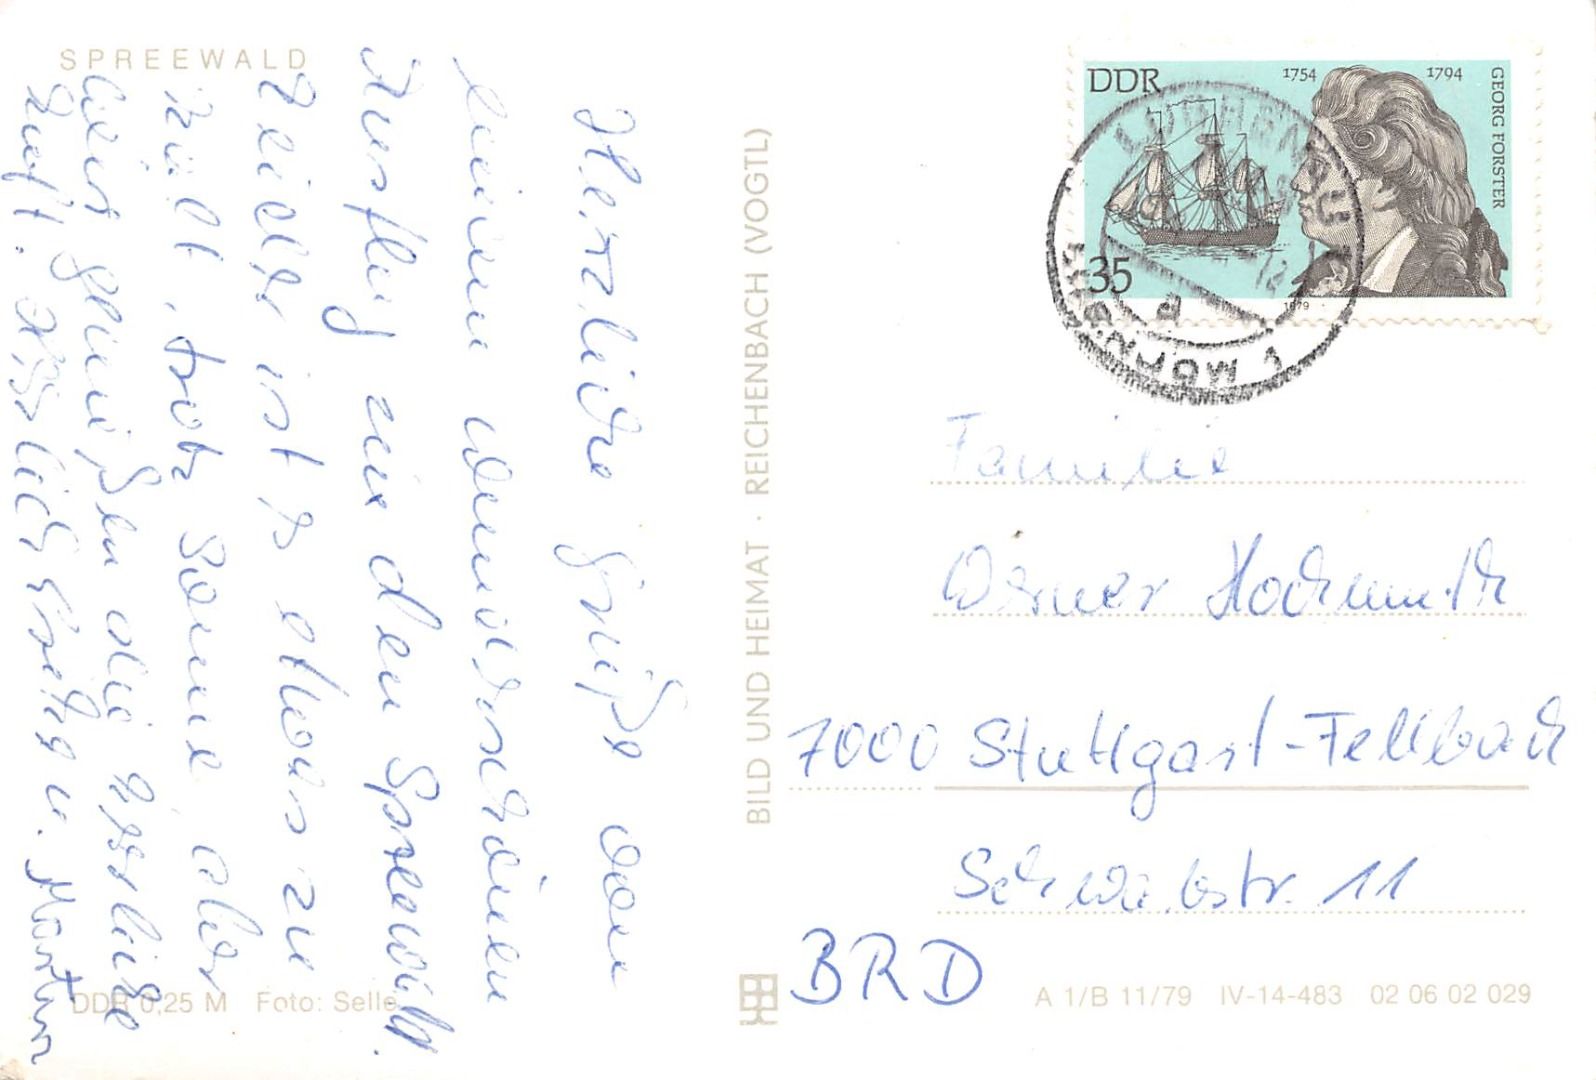 SPREEWALD
Herzliche Grüße von
einem wunderschönen
Ausflug in den Spreewald.
Leider ist es etwas zu
kühl, trotz Sonne aber
wir genießen die herrliche
Luft.
u. Martin
DDR 0,25 M Foto: Selle
BILD UND HEIMAT · REICHENBACH (VOGTL)
DDR
1754
1794
GEORG FORSTER
35
1979
Familie
Werner Hochmuth
7000 Stuttgart-Fellbach
Schwabstr. 11
BRD
A 1/B 11/79 IV-14-483 02 06 02 029